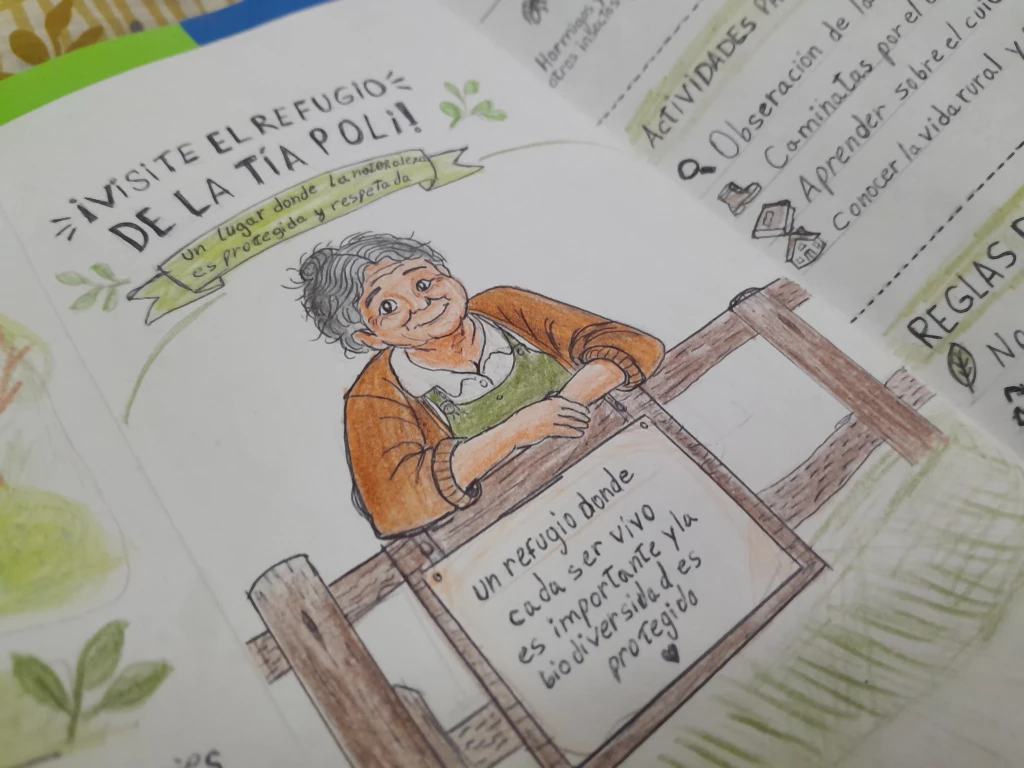 ¡VISITE EL REFUGIO
DE LA TÍA POLI!
un lugar donde la naturaleza
es protegida y respetada
un refugio donde
cada ser vivo
es importante y la
biodiversidad es
protegido
Hormigas
otros insectos
ACTIVIDADES
Obseración de
Caminatas por el
Aprender sobre el
Conocer la vida rural y
REGLAS
No